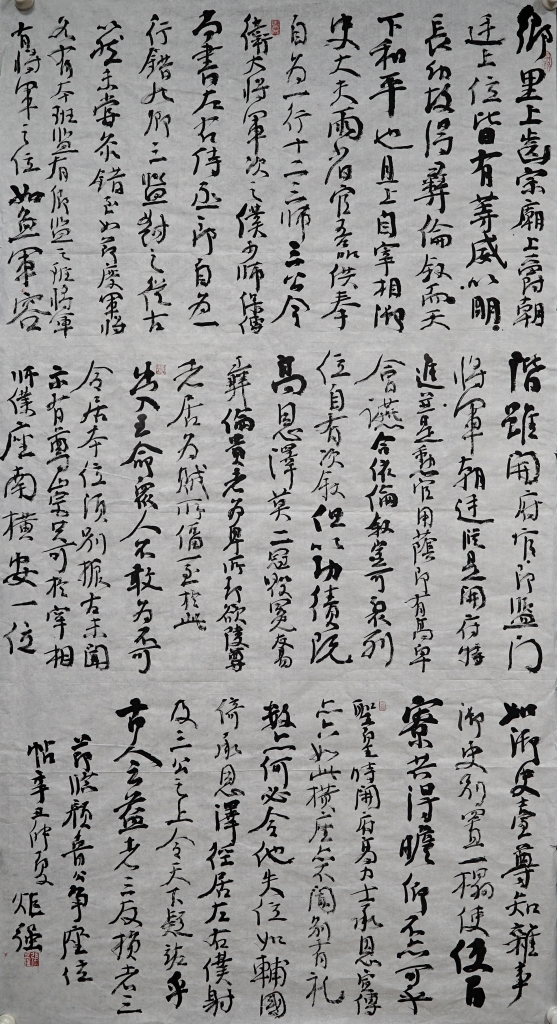 鄉里上齒宗廟上爵朝
廷上位皆有等威以明
長幼故得彝倫敘而天
下和平也且上自宰相御
史大夫兩省官供奉
自为一行十二三師三公令
衛大將軍次之僕少師保傅
尚書左右侍丞郎自为一
行錯九卿三監對之從古
然未嘗參錯至如節度軍將
各有本班監有所監之班將軍
有將軍之位如魚軍容
階雖開府官即監门
將軍朝廷從是開府特
進並是勲官用蔭即有高卑
會讌合依倫敘豈可裂列
位自有次敘但以功績既
高恩澤莫二冠毀冕反易
彝倫貴者为卑所欲陵尊
老居为賊所逼至於此
出入王命衆人不敢为不可
令居本位須別振古未聞
亦有尊崇只可於宰相
師僕座南橫安一位
如御史臺尊知雜事
御史別置一榻使百
寮共得瞻仰不亦可乎
聖皇時開府高力士承恩宣傳
亦只如此橫座亦不聞別有礼
數亦何必令他失位如輔國
倚承恩澤徑居左右僕射
及三公之上令天下疑訝乎
古人云益者三友損者三
節臨顏魯公爭座位
帖辛丑仲夏炬强